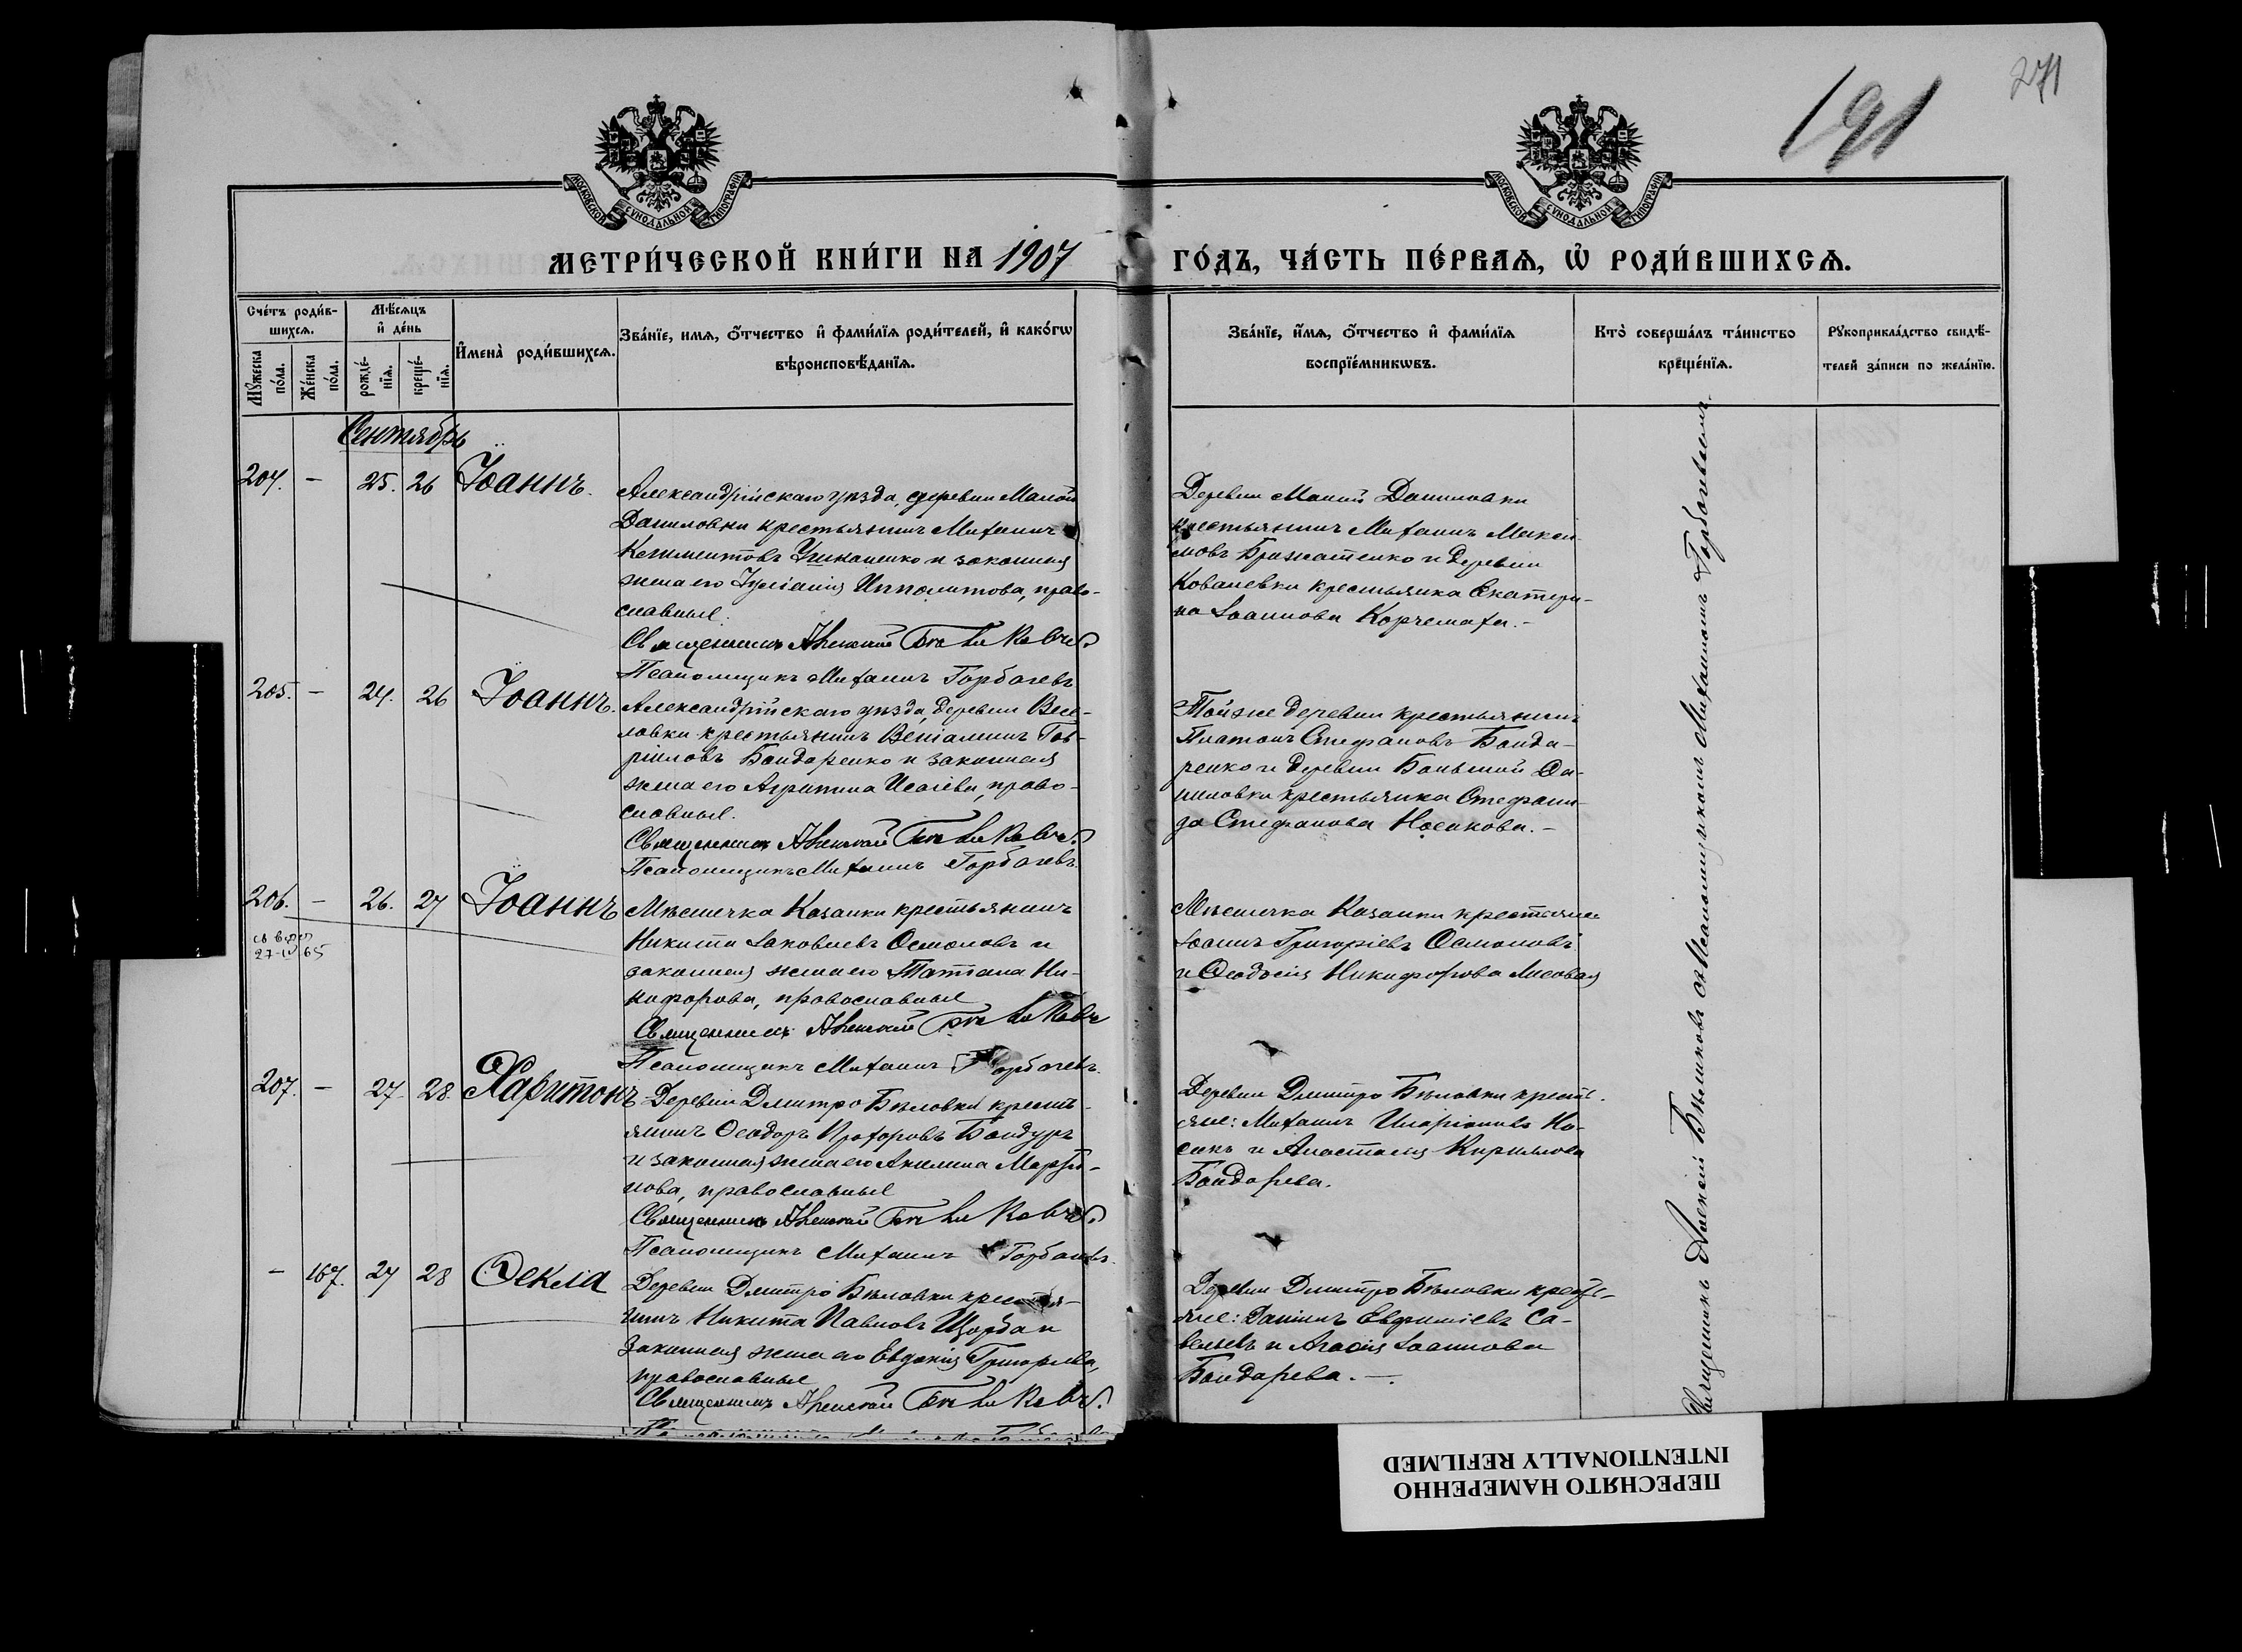 271
191
МОСКОВСКОЙ СѴНОДАЛЬНОЙ ТИПОГРАФІИ
МОСКОВСКОЙ СѴНОДАЛЬНОЙ ТИПОГРАФІИ
МЕТРИ́ЧЕСКОЙ КНИ́ГИ НА 1907 ГО́ДЪ, ЧА́СТЬ ПЕ́РВАѦ, Ѡ҆ РОДИ́ВШИХСѦ.
Сче́тъ роди́в-
шихсѧ.
Мꙋ́жеска по́ла.
Же́нска по́ла.
Мѣ́сѧцъ
и҆ де́нь
рожде́-
нїѧ.
креще́-
нїѧ.
И҆мена̀ роди́вшихсѧ.
Зва́нїе, имѧ, ѻ҆́тчество и҆ фами́лїѧ роди́телей, и҆ како́гѡ
вѣроисповѣ́данїѧ.
Зва́нїе, и҆́мѧ, ѻ҆́тчество и҆ фами́лїѧ
воспрїе́мникѡвъ.
Кто̀ соверша́лъ та́инство
креще́нїѧ.
Рꙋкоприкла́дство свидѣ́-
телей за́писи по жела́нїю.
Сентябрь
204. - 25. 26 Іоаннъ.
Александрійскаго уѣзда, деревни Малой
Даниловки крестьянинъ Михаилъ
Климентовъ и законная
жена его Іуліанія Ипполитова, право-
славные.
Священникъ Алексій
Псаломщикъ Михаилъ Горбачевъ
Деревни Малой Даниловки
крестьянинъ Михаилъ Макси-
мовъ и деревни
Ковалевки крестьянка Екатери-
на Іоаннова Корчемаха.-
205. - 24. 26 Іоаннъ.
Александрійскаго уѣзда, деревни Весе-
ловки крестьянинъ Веніаминъ Гав-
ріиловъ Бондаренко и законная
жена его Агрипина Исаіева, право-
славные.
Священникъ Алексій
Псаломщикъ Михаилъ Горбачевъ
Той же деревни крестьянинъ
Платонъ Стефановъ Бонда-
ренко и деревни Большой Да-
ниловки крестьянка Стефани-
да Стефанова Носикова.-
206. - 26. 27 Іоаннъ
27-IV 65
Мѣстечка Казанки крестьянинъ
Никита Іаковлевъ Осмоловъ и
законная жена его Татіана Ни-
кифорова, православные
Священникъ Алексій
Псаломщикъ Михаилъ Горбачевъ.
Мѣстечка Казанки крестьяне
Іоаннъ Григоріевъ Осмоловъ
и Ѳеодосія Никифорова Лисовая
207. - 27. 28. Харитонъ
Деревни Дмитро Бѣловки кресть-
янинъ Ѳеодоръ Прохоровъ Бондуръ
и законная жена его Акилина Марты-
нова, православные
Священникъ Алексій
Псаломщикъ Михаилъ Горбачевъ.
Деревни Дмитро Бѣловки кресть-
яне: Михаилъ Иларіоновъ Но-
сикъ и Анастасія Кириллова
Бондарева.
- 167. 27 28 Ѳекла
Деревни Дмитро Бѣловки крестья-
нинъ Никита Павловъ Щорба и
законная жена его Евдокія Григорьева,
православные
Священникъ Алексій
Деревни Дмитро Бѣловки кресть-
яне: Даніилъ Евфиміевъ Са-
вельевъ и Агафія Іоаннова
Бондарева.-
Священникъ Алексій съ псаломщикомъ Михаиломъ Горбачевымъ.
ПЕРЕСНЯТО НАМЕРЕННО
INTENTIONALLY REFILMED